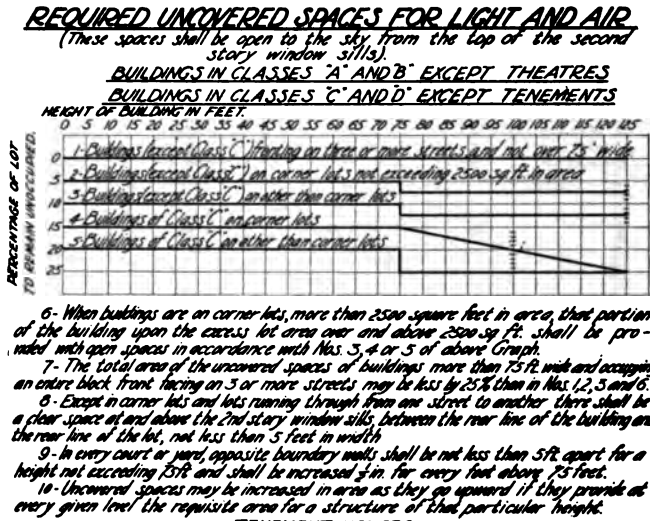 REQUIRED UNCOVERED SPACES FOR LIGHT AND AIR
(These spaces shall be open to the sky from the top of the second
story window sills).
BUILDINGS IN CLASSES "A" AND "B" EXCEPT THEATRES
BUILDINGS IN CLASSES "C" AND "D" EXCEPT TENEMENTS
HEIGHT OF BUILDING IN FEET.
0 5 10 15 20 25 30 35 40 45 50 55 60 65 70 75 80 85 90 95 100 105 110 115 120 125
PERCENTAGE OF LOT
TO REMAIN UNOCCUPIED.
0
5
10
15
20
25
1-Buildings (except Class "C") fronting on three or more streets and not over 75' wide
2-Buildings (except Class "C") on corner lots not exceeding 2500 sq ft. in area
3-Buildings (except Class "C") on other than corner lots
4-Buildings of Class "C" on corner lots
5-Buildings of Class "C" on other than corner lots
6- When buildings are on corner lots, more than 2500 square feet in area, that portion
of the building upon the excess lot area over and above 2500 sq ft. shall be pro-
vided with open spaces in accordance with Nos. 3, 4 or 5 of above Graph.
7- The total area of the uncovered spaces of buildings more than 75 ft wide and occupying
an entire block front facing on 3 or more streets may be less by 25% than in Nos. 1, 2, 3 and 6.
8- Except in corner lots and lots running through from one street to another there shall be
a clear space at and above the 2nd story window sills, between the rear line of the building and
the rear line of the lot, not less than 5 feet in width
9- In every court or yard, opposite boundary walls shall be not less than 5ft apart for a
height not exceeding 75ft and shall be increased ½ in. for every foot above 75 feet.
10- Uncovered spaces may be increased in area as they go upward if they provide at
every given level the requisite area for a structure of that particular height.